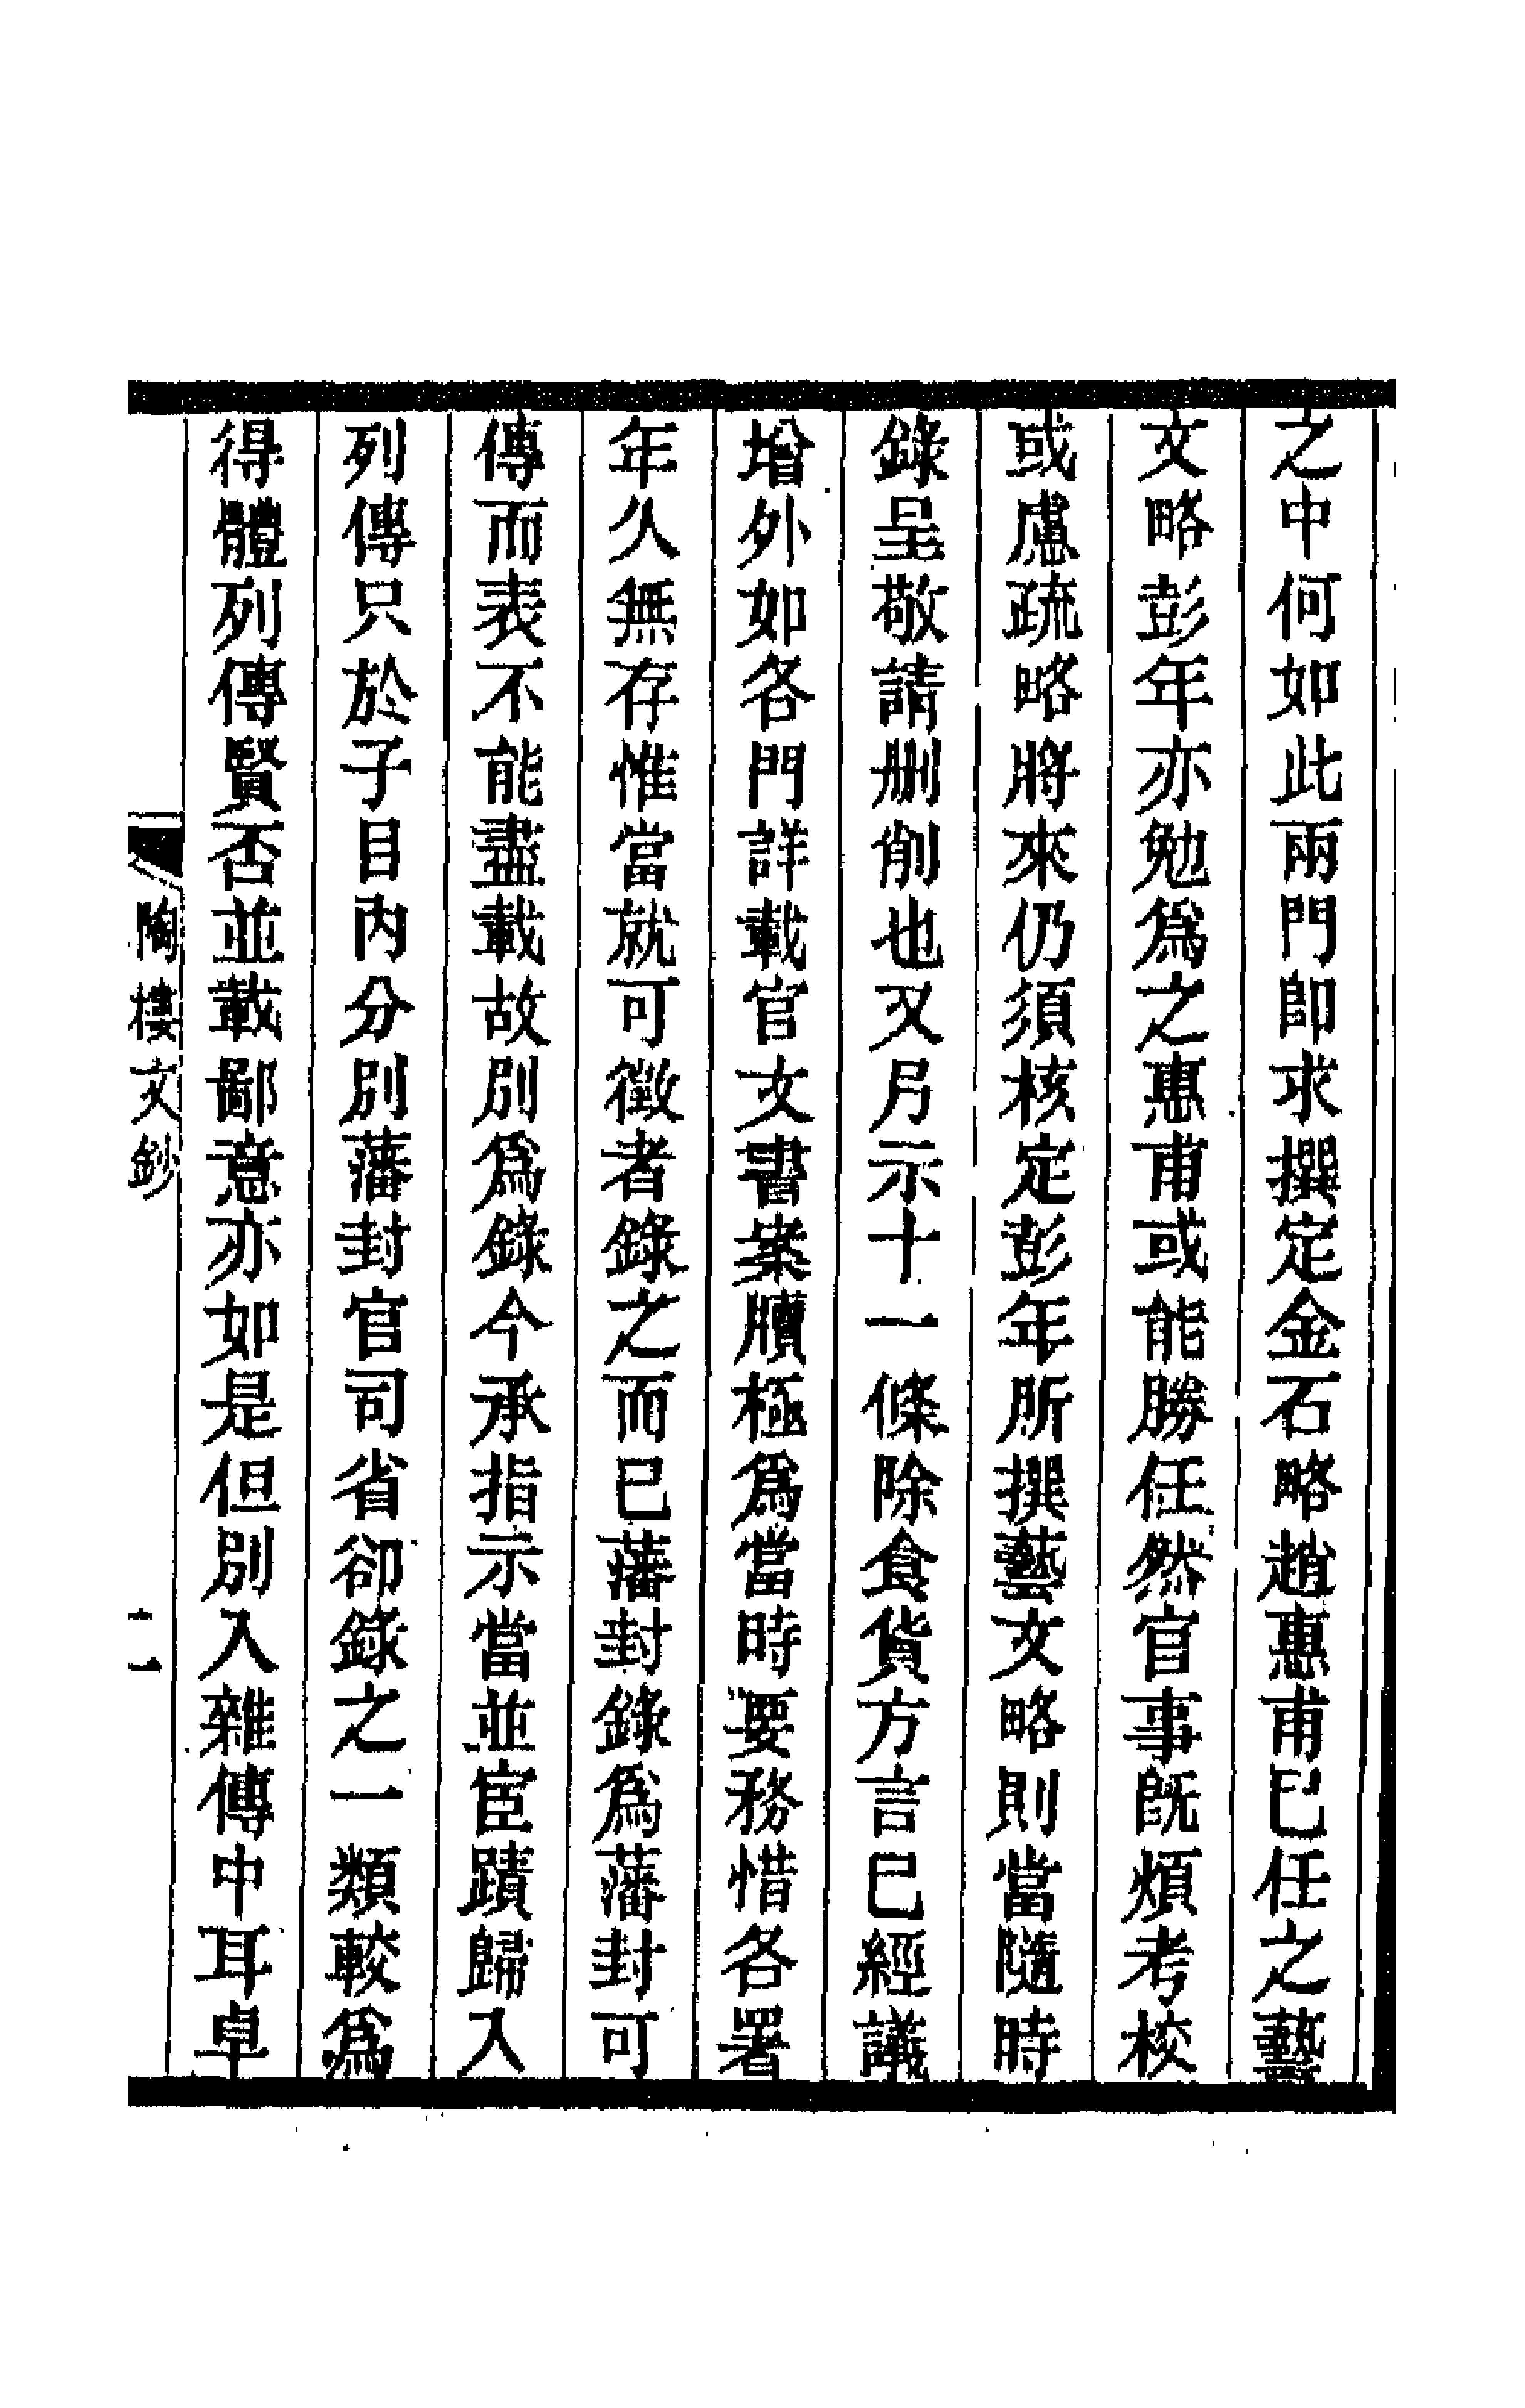 之中何如此兩門卽求撰定金石略趙惠甫已任之藝
文略彭年亦勉爲之惠甫或能勝任然官事旣煩考校
或慮疏略將來仍須核定彭年所撰藝文略則當隨時
錄呈敬請刪削也又月示十一條除食貨方言已經議
增外如各門詳載官文書案牘極爲當時要務惜各署
年久無存惟當就可徵者錄之而已藩封錄爲藩封可
傳而表不能盡載故別爲錄今承指示當並宦蹟歸入
列傳只於子目內分別藩封官司省卻錄之一類較爲
得體列傳賢否並載鄙意亦如是但別入雜傳中耳卓
陶樓文鈔